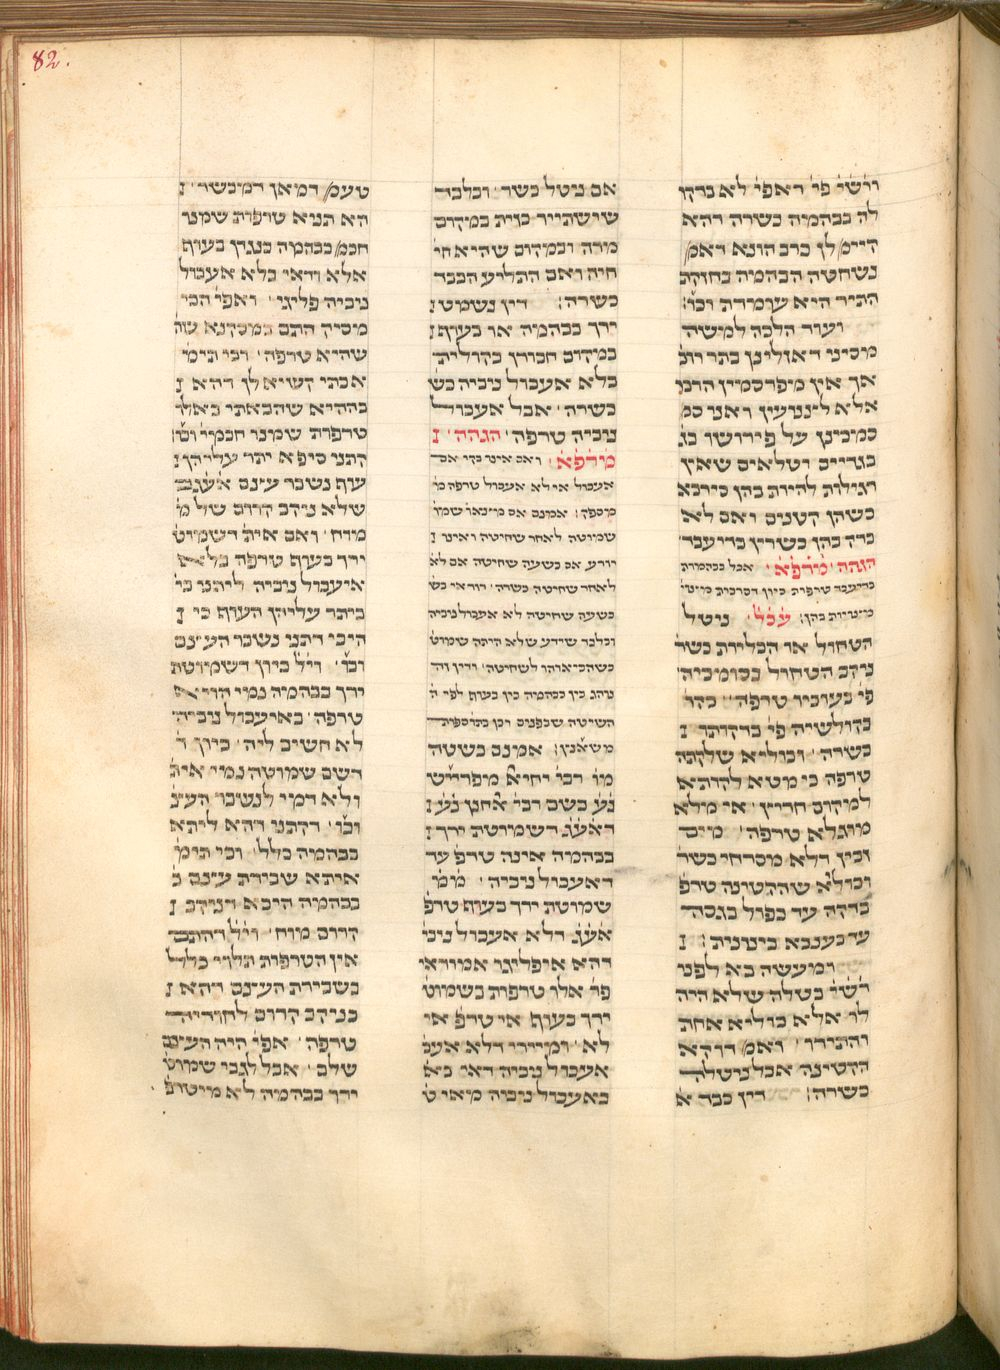 82.
ורש׳׳י פי׳ דאפי׳ לא בדקו
לה בבהמה כשרה דהא
קיימ׳ לן כרב הונא דאמ׳
נשחטה הבהמה בחזקת
התר היא עומדת וכו׳:
ועוד הלכה למשה
מסיני דאזלינן בתר רוב
אך אין מפרסמין הדבר
אלא לצנועין ואנו
סמכינן על פירושו
בגדיים וטלאים שאין
רגילות להיות בהן סירכא
כשהן קטנים ואם לא
בדק בהן כשרין בדיעבד
הגהה מורפא אבל בבהמות
בדיעבד טריפות כיון דסרכות
מצויות בהן: עכל ניטל
הטחול או הכליות כשר
ניקב הטחול בסומכיה
פי׳ בעוביו טרפה בקר
בקולשיה פי׳ בדקותו
כשרה וכוליא שלקתה
טרפה כי מטא לקותא
למקום חריץ אי מלא
מוגלא טרפה מים
זכין דלא מסרחי כשר
וכוליא שהקטינה טרפ׳
בדקה עד כפול בגסה
עד כענבא בינונית:
ומעשה בא לפני
רש׳׳י בטלה שלא היה
לו אלא כוליא אחת
והתירו ואמ׳ דוקא
הקטינה אבל ניטלה
כשרה: דין כבד
אם ניטל כשר ובלבד
שישתייר כזית במקום
מרה ובמקום שהיא חי
חיה ואם התליע הכבד
כשרה: דין נשמט
ירך בבהמה או בעוף
במקום חבורן בקולית
בלא אעכול ניביה
כשרה אבל אעכול
ניביה טרפה הגהה
מורפא ואם אינו בקי אם
אעכול אי לא אעכול טרפה
מספק: אמנם אם מצאו שמו
שמוטה לאחר שחיטה ואינו
יודע אם בשעת שחיטה אם לא
לאחר שחיטה כשרה דודאי
בשעת שחיטה לא אעכול ניביה
ובלבד שידע שלא היתה שמוט
כשהביאוהו לשחיטה ודין זה
נוהג בין בבהמה בין בעוף לפי
השיטה שבפנים וכן בתוספות
משאנץ: אמנם בשטה
מו רבי יחיא מפריש
נ׳׳ע בשם רבי אהרן נ׳׳ע
דאע׳׳ג דשמוטת ירך
בבהמה אינה טרפ׳ עד
דאעכול ניביה מ׳׳מ
שמוטת ירך בעוף טרפ׳
אע׳׳ג דלא אעכול ניבי
דהא איפליגו אמוראי
פר׳ אלו טרפות בשמוט
ירך בעוף אי טרפ׳ אי
לא ומיירי דלא
אעכול ניביה דאי
באעכול ניביה מאי
טעמ׳ דמאן דמכשר
הא תניא טרפות שמנו
חכמ׳ בבהמה כנגדן בעוף
אלא ודאי בלא אעכול
ניביה פליגי ואפי׳ הכי
מסיק התם במסקנא
שהיא טרפה וכי תימ׳
אכתי קשיא לן דהא
בההיא שהבאתי באלו
טרפות שמנו חכמי׳ וכו׳
קתני סיפא יתר עליהן
עוף נשבר עצם אע׳׳פ
שלא ניקב קרום של מ
מוח ואם אית׳ דשמוט
ירך בעוף טרפה בלא
איעכול ניביה ליתני
ביתר עליהן העוף כי
היכי דתני נשבר העצם
וכו׳ וי׳׳ל כיון דשמוטת
ירך בבהמה נמי הויא
טרפה באיעכול ניביה
לא חשיב ליה כיון ד
השם שמוטה נמי אית
ולא דמי לנשבר העצ׳
וכו׳ דקתני דהא ליתא
בבהמה כלל וכי תימ׳
איתא שבירת עצם
בבהמה היכא דניקב
קרום מוח וי׳׳ל דהתם
אין הטרפות תלוי כלל
בשבירת העצם דהא
בניקב קרום לחודיה
טרפה אפי׳ היה העצם
שלם אבל לגבי שמוט
ירך בבהמה לא מיטרפ׳